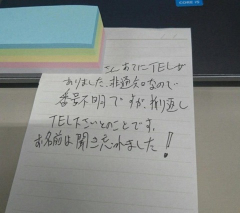 あてにTELが
ありました、非通知なので
番号不明ですが、折り返し
TEL下さいとのことです。
お名前は聞き忘れました!